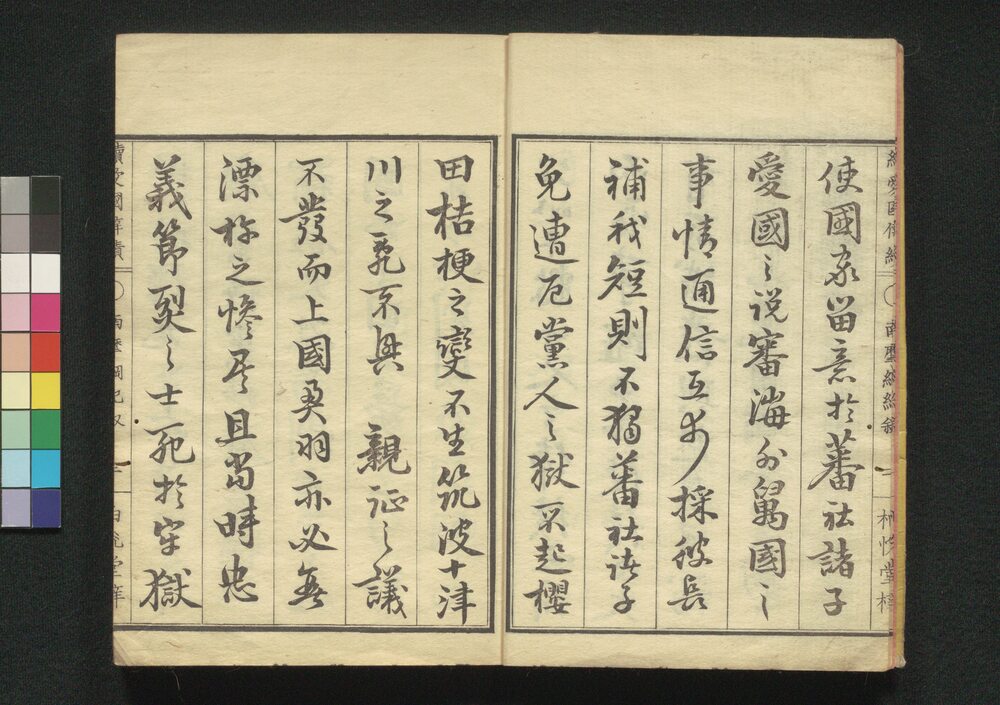 使國家留意於蕃社諸子
愛國之説審海外萬國之
事情通信互市採彼長
補我短則不獨蕃社諸子
免遭厄黨人之獄不起櫻
田桔梗之變不生筑波十津
川之亂不興 親征之議
不發而上國奥羽亦必無
漂杵之慘矣且當時忠
義節烈之士死於牢獄